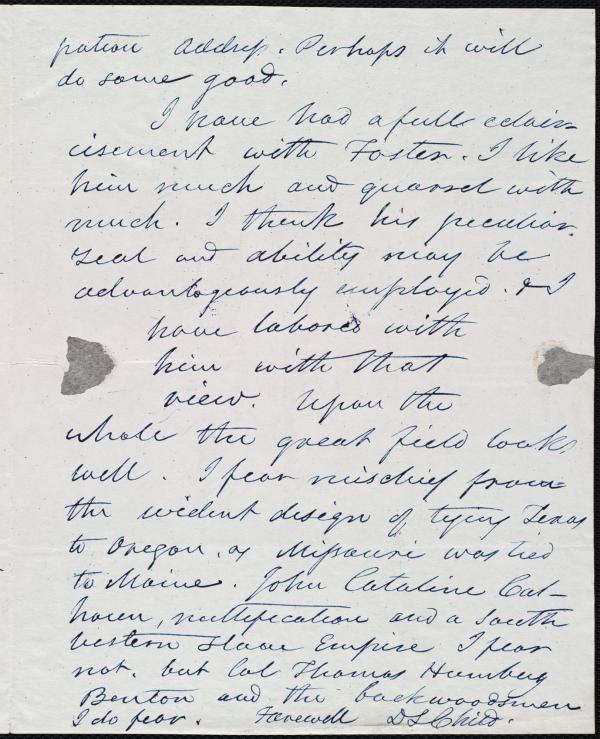 pation Address. Perhaps it will
do some good.
I have had a full eclair-
cisement with Foster. I like
him much and quarrel with
much. I think his peculiar
zeal and ability may be
advantageously employed. & I
have labored with
him with that
view. Upon the
whole the great field looks
well. I fear mischief from
the evident design of tying Texas
to Oregon, as Missouri was tied
to Maine. John Cataline Cal-
houn, nullification and a South
western Slave Empire I fear
not, but Col Thomas Humbug
Benton and the backwoodsmen
I do fear. Farewell D L Child.